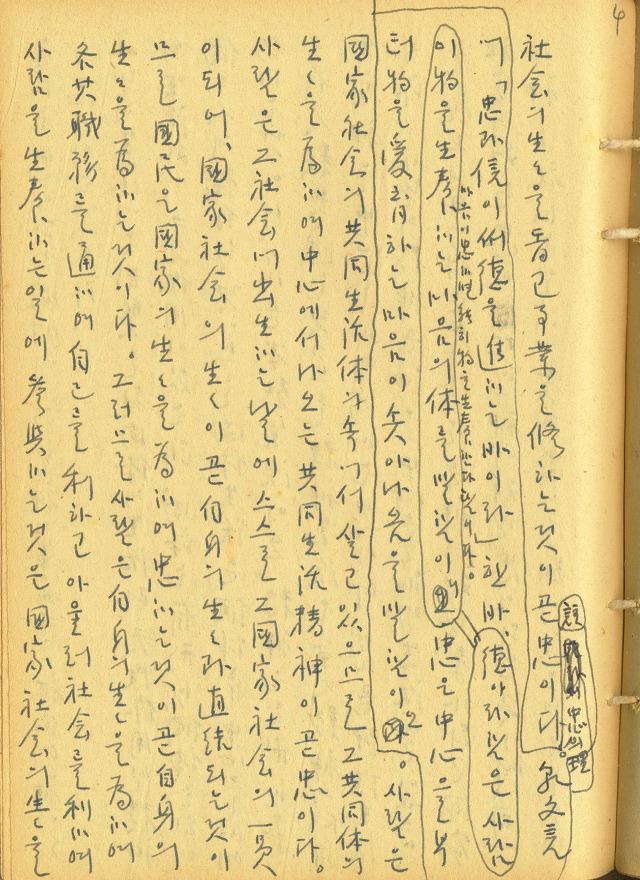 4
社会의 生生을 돕고 事業을 修하는 것이 곧 忠이다。 乾文言
에「忠과 信이 써 德을 進하는 바이라」한바、德이라 것은 사람
마음이 忠하면 能히 物을 生養한다 함이다。
이 物을 生養하는 마음의 体를 말함이 忠은 中心을
터 物을 愛育하는 마음이 솟아나옴을 말함이。 사람은
國家社会의 共同生活体 속에서 살고 있으므로 그 共同体의
生生을 爲하여 中心에서 나오는 共同生活精神이 곧 忠이다。
사람은 그 社会에 出生하는 날에 스스로 그 國家社会의 一員
이 되어、國家社会의 生生이 곧 自身의 生生과 直結되는 것이
므로 國民은 國家의 生生을 爲하여 忠하는 것이 곧 自身의
生生을 爲하는 것이다。그러므로 사람은 自身의 生生을 爲하여
各其 職務를 通하여 自己를 利하고 아울러 社会를 利하며
사람을 生養하는 일에 參與하는 것은 國家社会의 生生을
註 忠의 理